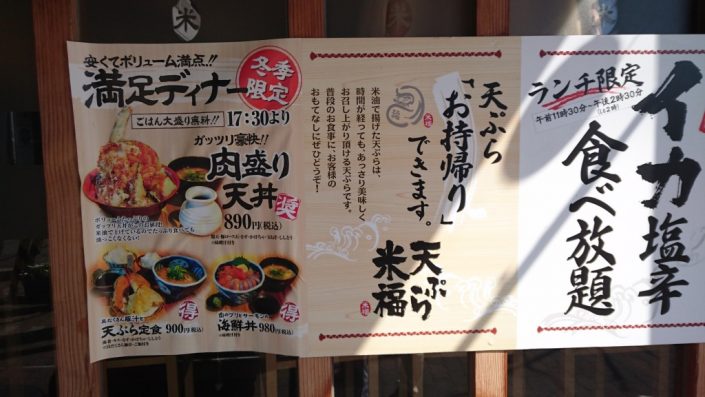 米
米
安くてボリューム満点!!
満足ディナー
冬季
限定
ごはん大盛り無料!!
17:30より
ガッツリ豪快!!
肉盛り
天丼
奨
890円(税込)
具だくさん豚汁と
天ぷら定食 900円(税込)
得
海鮮丼 980円(税込)
得
天ぷら
「お持帰り」
できます。
米油で揚げた天ぷらは、
時間が経っても、あっさり美味しく
お召し上がり頂ける天ぷらです。
普段のお食事に、お客様の
おもてなしにぜひどうぞ!
天ぷら
米福
ランチ限定
午前11時30分~午後2時30分
イカ塩辛
食べ放題